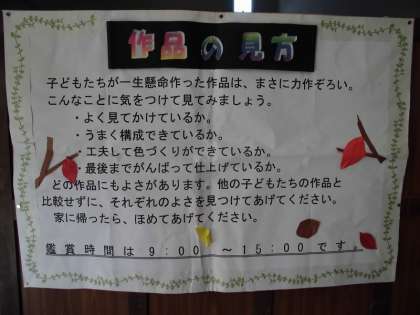 作品の見方
子どもたちが一生懸命作った作品は、まさに力作ぞろい。
こんなことに気をつけて見てみましょう。
・よく見てかけているか。
・うまく構成できているか。
・工夫して色づくりができているか。
・最後までがんばって仕上げているか。
どの作品にもよさがあります。他の子どもたちの作品と
比較せずに、それぞれのよさを見つけてあげてください。
家に帰ったら、ほめてあげてください。
鑑賞時間は9:00~15:00です。